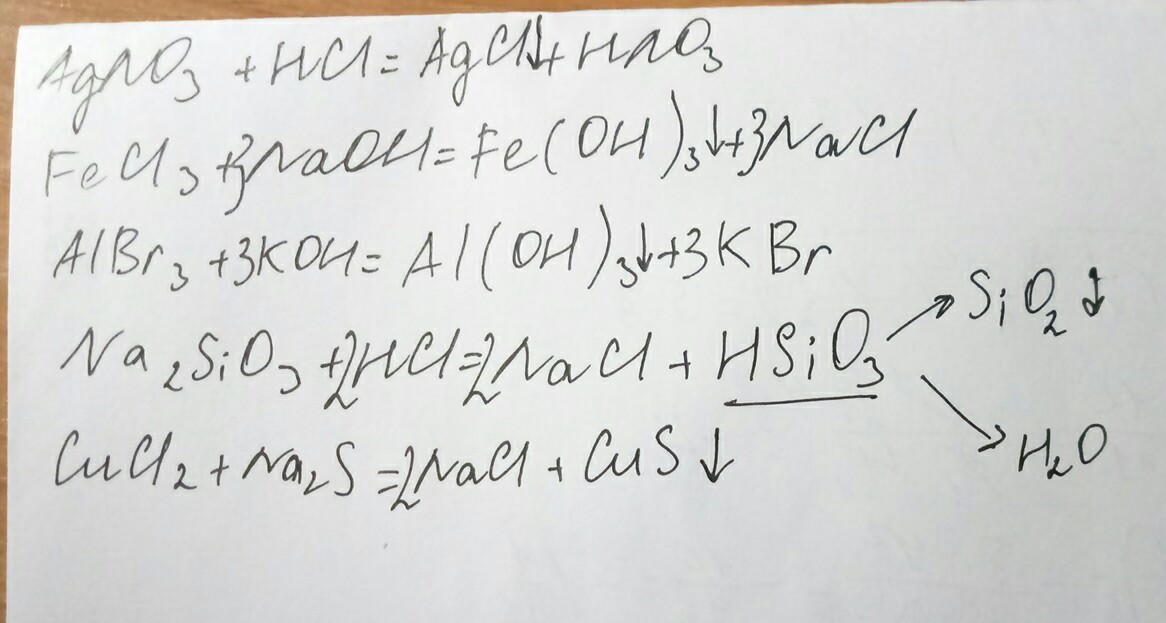 AgNO₃ + HCl = AgCl↓ + HNO₃
FeCl₃ + 3NaOH = Fe(OH)₃↓ + 3NaCl
AlBr₃ + 3KOH = Al(OH)₃↓ + 3KBr
Na₂SiO₃ + 2HCl = 2NaCl + HSiO₃ → SiO₂↓
→ H₂O
CuCl₂ + Na₂S = 2NaCl + CuS↓